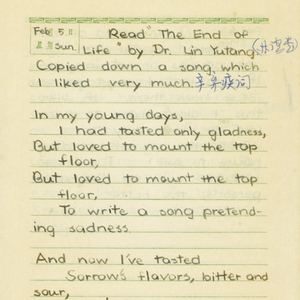 Feb 5 Read "The End of
Sun. Life" by Dr. Lin Yutang
Copied down a song, which
I liked very much. 辛弃疾词
In my young days,
I had tasted only gladness,
But loved to mount the top
floor,
But loved to mount the top
floor,
To write a song pretend-
ing sadness.
And now I've tasted
Sorrow's flavors, bitter and
sour,